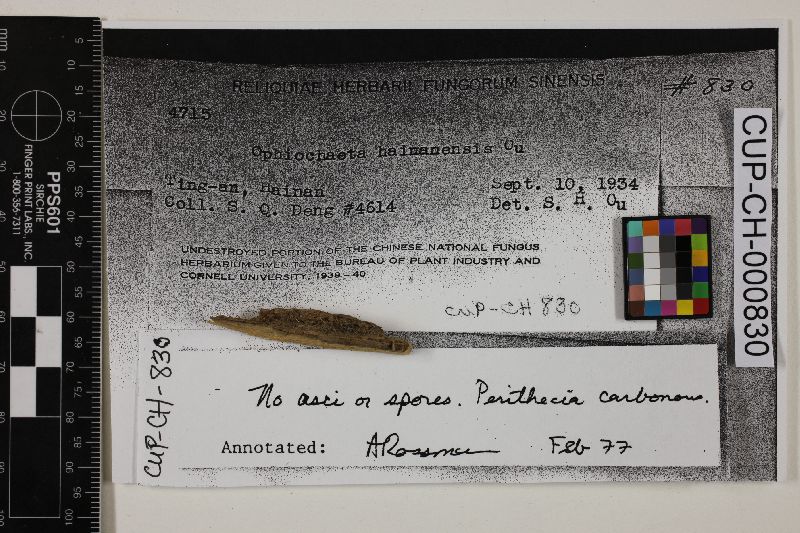 RELIQUIAE HERBARII FUNGORUM SINENSIS
# 830
4715
Ophiochaeta hainanensis Ou
Ting-an, Hainan
Sept. 10, 1934
Coll. S. Q. Deng #4614
Det. S. H. Ou
UNDESTROYED PORTION OF THE CHINESE NATIONAL FUNGUS
HERBARIUM GIVEN TO THE BUREAU OF PLANT INDUSTRY AND
CORNELL UNIVERSITY, 1939-40
CUP-CH 830
CUP-CH-000830
CUP-CH-830
No asci or spores. Perithecia carbonous.
Annotated: ARossman Feb 77
PPS601
SIRCHIE
FINGER PRINT LABS., INC.
1-800-356-7311
mm
5
10
15
20
25
30
35
40
45
50
55
60
65
70
75
80
85
90
95
100
10
20
30
40
50
60
70
80
90
100